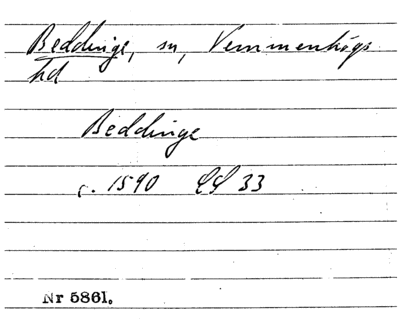 Beddinge, sn, Vemmenhögs
hd
Beddinge
c. 1590 LL 33
Nr 5861.